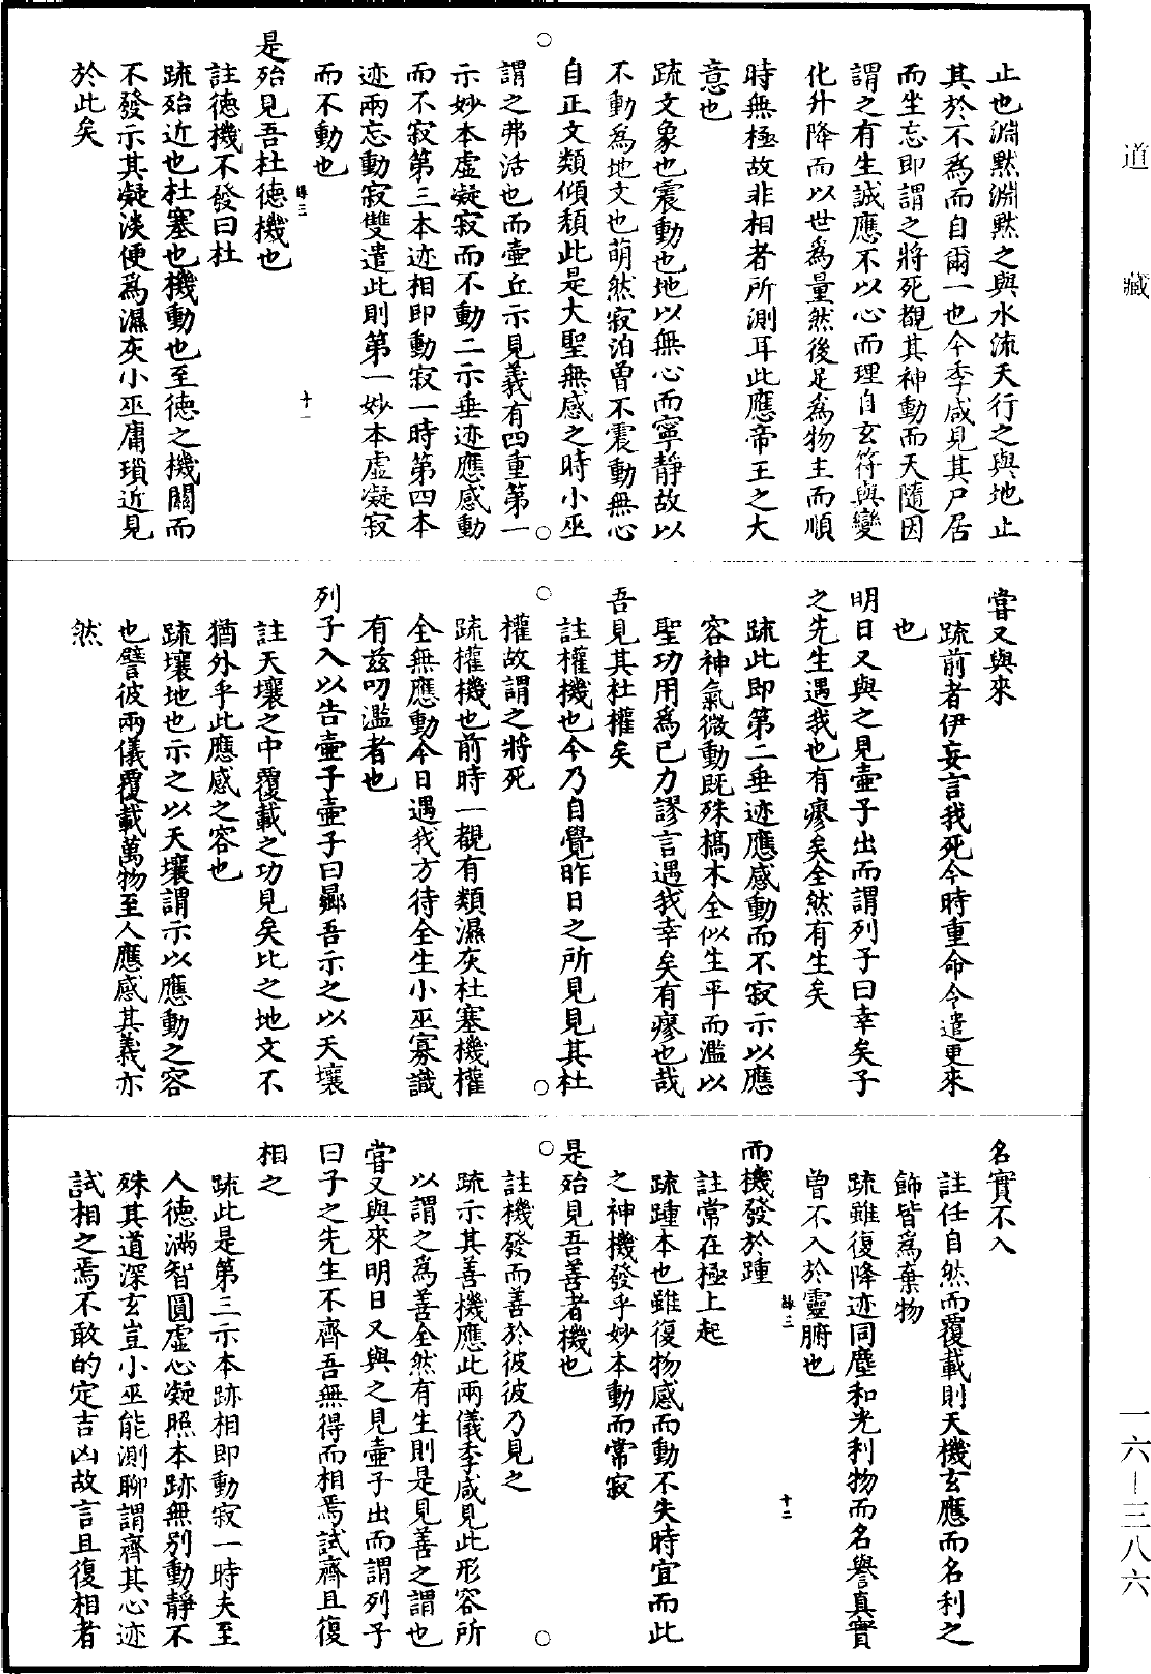 道藏
止也淵黙淵黙之與水流天行之與地止
其於不爲而自爾一也今季咸見其尸居
而坐忘即謂之將死覩其神動而天隨因
謂之有生誠應不以心而理自玄符與變
化升降而以世爲量然後足爲物主而順
時無極故非相者所測耳此應帝王之大
意也
䟽文象也震動也地以無心而寧靜故以
不動爲地文也萌然寂泊曾不震動無心
自正文類傾頽此是大聖無感之時小巫
謂之弗活也而壺丘示見義有四重第一
示妙本虛凝寂而不動二示垂迹應感動
而不寂第三本迹相即動寂一時第四本
迹兩忘動寂雙遣此則第一妙本虛凝寂
而不動也
是殆見吾杜德機也
註德機不發曰杜
䟽殆近也杜塞也機動也至德之機關而
不發示其凝淡便爲濕灰小巫庸瑣近見
於此矣
十一
嘗又與來
䟽前者伊妄言我死今時重命令遣更來
也
明日又與之見壺子出而謂列子曰幸矣子
之先生遇我也有瘳矣全然有生矣
䟽此即第二垂迹應感動而不寂示以應
容神氣微動既殊槁木全似生平而濫以
聖功用爲已力謬言遇我幸矣有瘳也哉
吾見其杜權矣
註權機也今乃自覺昨日之所見見其杜
權故謂之將死
䟽權機也前時一覩有類濕灰杜塞機權
全無應動今日遇我方待全生小巫寡識
有兹叨濫者也
列子入以告壺子壺子曰曏吾示之以天壤
註天壤之中覆載之功見矣比之地文不
猶外乎此應感之容也
䟽壤地也示之以天壤謂示以應動之容
也譬彼兩儀覆載萬物至人應感其義亦
然
名實不入
註任自然而覆載則天機玄應而名利之
飾皆爲棄物
䟽雖復降迹同塵和光利物而名譽真實
曾不入於靈腑也
而機發於踵
註常在極上起
䟽踵本也雖復物感而動不失時宜而此
之神機發乎妙本動而常寂
是殆見吾善者機也
註機發而善於彼彼乃見之
䟽示其善機應此兩儀季咸見此形容所
以謂之爲善全然有生則是見善之謂也
嘗又與來明日又與之見壺子出而謂列子
曰子之先生不齊吾無得而相焉試齊且復
相之
䟽此是第三示本跡相即動寂一時夫至
人德滿智圓虛心凝照本跡無別動靜不
殊其道深玄豈小巫能測聊謂齊其心迹
試相之焉不敢的定吉凶故言且復相者
十二
一六—三八六